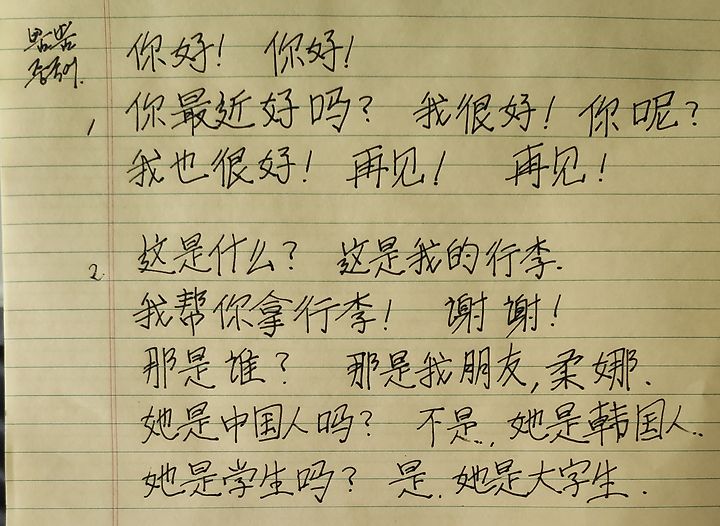 你好! 你好!
1 你最近好吗? 我很好! 你呢?
我也很好! 再见! 再见!
2. 这是什么? 这是我的行李.
我帮你拿行李! 谢谢!
那是谁? 那是我朋友,柔娜.
她是中国人吗? 不是, 她是韩国人.
她是学生吗? 是. 她是大字生.